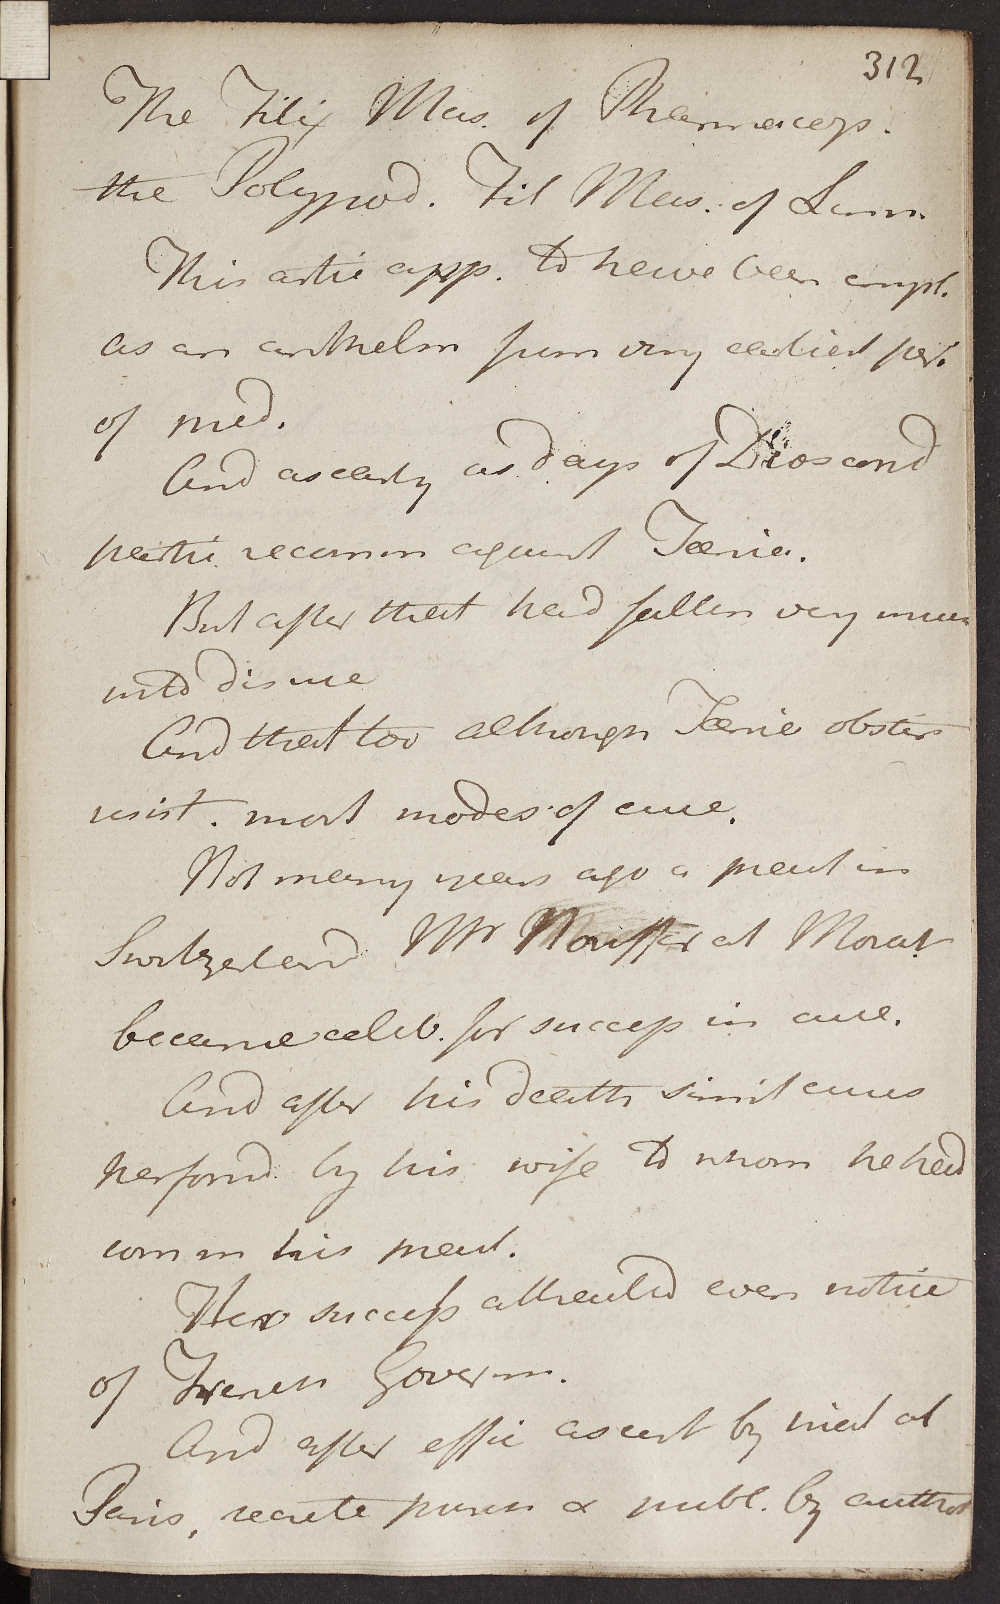 312
The Filix Mas. of Pharmacop.
the Polypod. Fil Mas. of Linn.
This artic app. to have been empl.
as an anthelm from very earliest per.
of med.
And as early as days of Dioscorid
partic. recomm against Taenia.
But after that had fallen very much
into disuse
And that too although Taenia obstin
resist. most modes of cure.
Not many years ago a pract in
Switzerland Mr Nouffer at Morat
became celeb. for success in cure.
And after his death simil cures
perform'd by his wife to whom he had
comm his pract.
Her success attracted even notice
of French Governm.
And after effic ascert by trial at
Paris, secrete purch & publ. by author